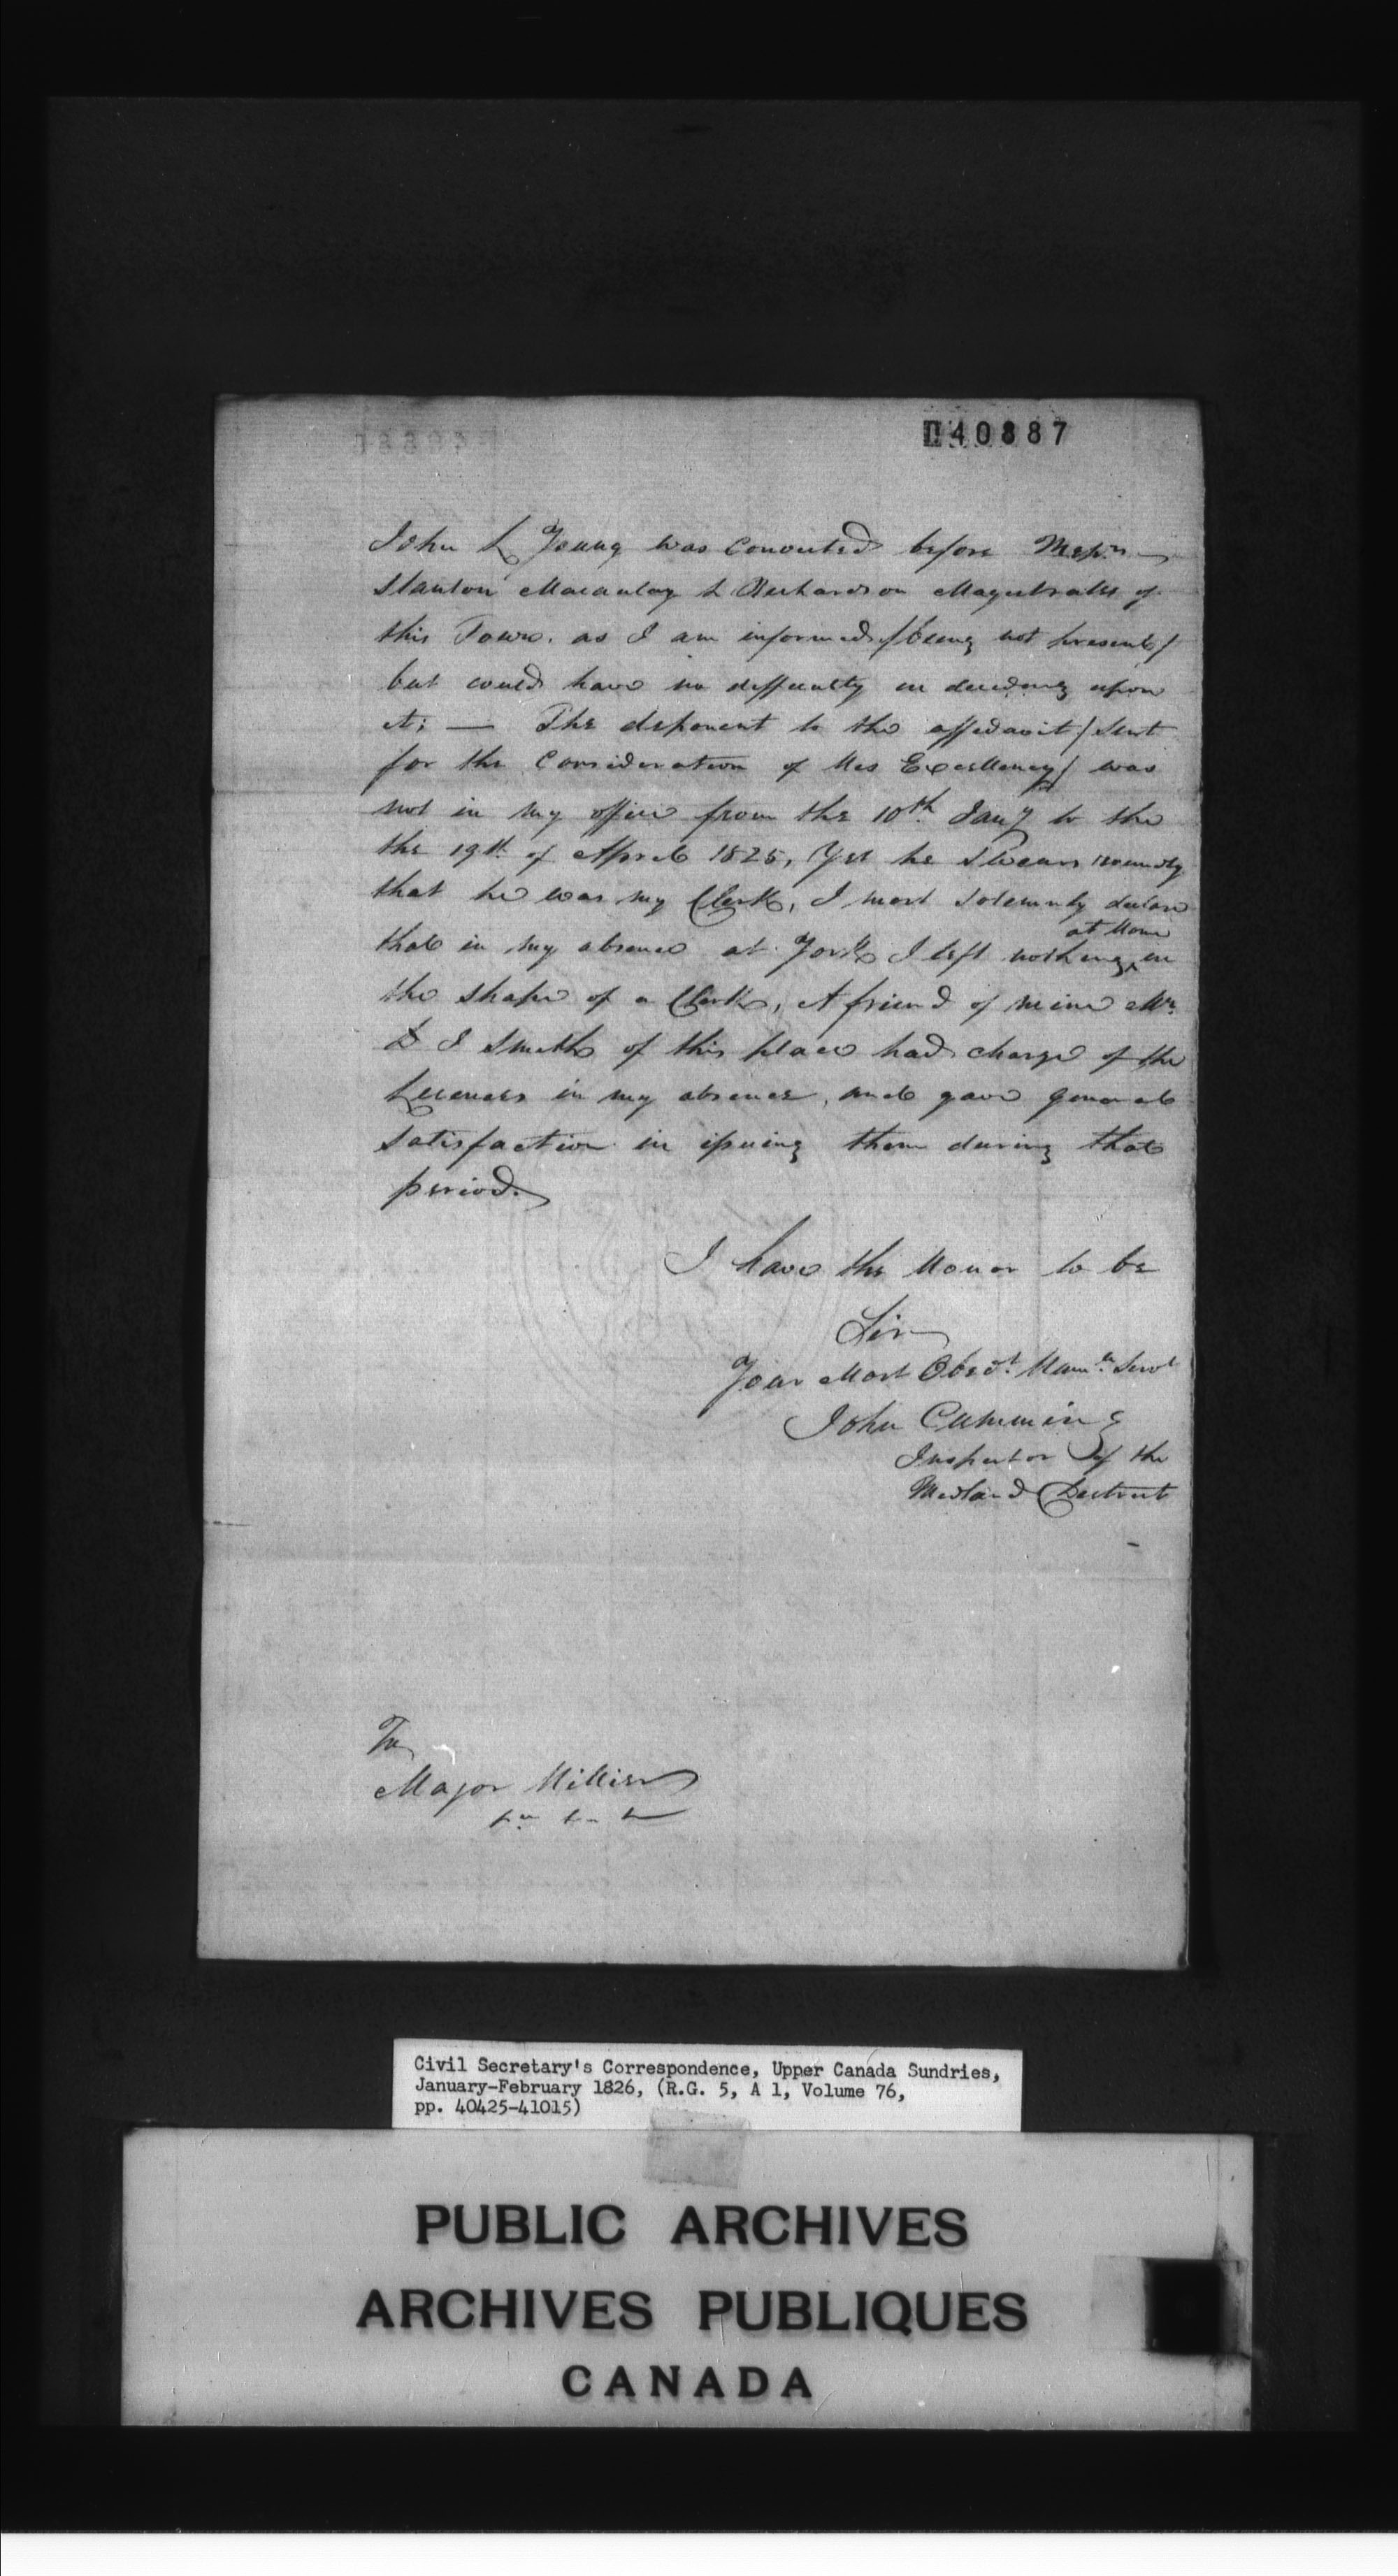 40887
John L Young was Convicted before Messrs
Stanton Macaulay & Richardson Magistrates of
this Town, as I am informed /being not present/
but could have no difficulty in deciding upon
it; — The deponent to the affidavit / sent
for the Consideration of His Excellency / was
not in my office from the 10th Jany to the
the 19th of April 1825, Yet he Swears roundly
that he was my Clerk, I most Solemnly declare
that in my absence at York I left nothing at Home in
the shape of a Clerk, A friend of mine Mr
D J Smith of this place had charge of the
Licences in my absence, and gave general
Satisfaction in issuing them during that
period.
I have the Honor to be
Sir
Your Most Obedt Humle Servt
John Cumming
Inspector of the
Midland District
To
Major Hillier
Civil Secretary's Correspondence, Upper Canada Sundries,
January-February 1826, (R.G. 5, A 1, Volume 76,
pp. 40425-41015)
PUBLIC ARCHIVES
ARCHIVES PUBLIQUES
CANADA